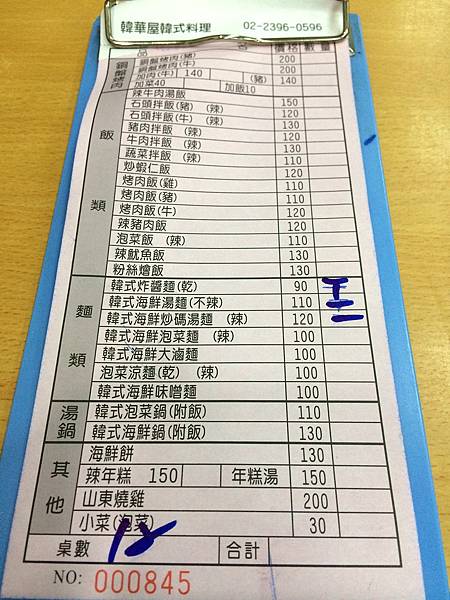 韓華屋韓式料理 02-2396-0596
品 名 價格 數量
銅盤烤肉
銅盤烤肉(豬) 200
銅盤烤肉(牛) 200
加肉(牛) 140 (豬) 140
加菜40 加飯10
飯類
辣牛肉湯飯
石頭拌飯(豬) (辣) 150
石頭拌飯(牛) (辣) 120
豬肉拌飯 (辣) 130
牛肉拌飯 (辣) 120
蔬菜拌飯 (辣) 110
炒蝦仁飯 120
烤肉飯(雞) 110
烤肉飯(豬) 110
烤肉飯(牛) 120
辣豬肉飯 120
泡菜飯 (辣) 110
辣魷魚飯 130
粉絲燴飯 130
麵類
韓式炸醬麵(乾) 90
韓式海鮮湯麵(不辣) 110
韓式海鮮炒碼湯麵 (辣) 120
韓式海鮮泡菜麵 (辣) 100
韓式海鮮大滷麵 100
泡菜涼麵(乾) (辣) 100
韓式海鮮味噌麵 100
湯鍋
韓式泡菜鍋(附飯) 110
韓式海鮮鍋(附飯) 130
其他
海鮮餅 130
辣年糕 150 年糕湯 150
山東燒雞 200
小菜(泡菜) 30
桌數 12 合計
NO: 000845